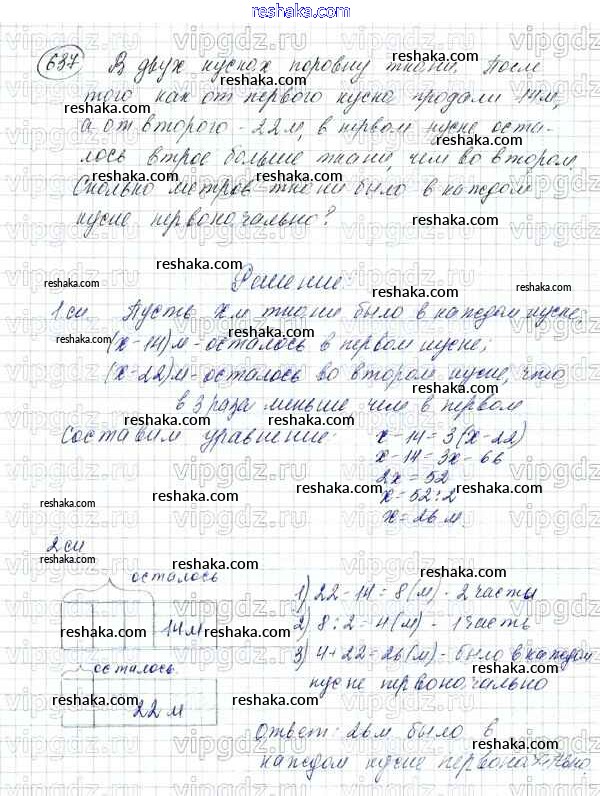 reshaka.com
637 В двух кусках поровну ткани. После
того как от первого куска продали 14м,
а от второго - 22 м, в первом куске оста-
лось втрое больше ткани, чем во втором.
Сколько метров ткани было в каждом
куске первоначально?
Решение:
1 сп. Пусть x м ткани было в каждом куске,
(x-14) м - осталось в первом куске;
(x-22) м - осталось во втором куске, что
в 3 раза меньше, чем в первом
Составим уравнение: x-14=3(x-22)
x-14=3x-66
2x=52
x=52:2
x=26 м.
2 сп
осталось
14 м
осталось
22 м
1) 22-14=8 (м) - 2 части
2) 8:2=4 (м) - 1 часть
3) 4+22=26 (м) - было в каждом
куске первоначально
Ответ: 26 м было в
каждом куске первоначально.